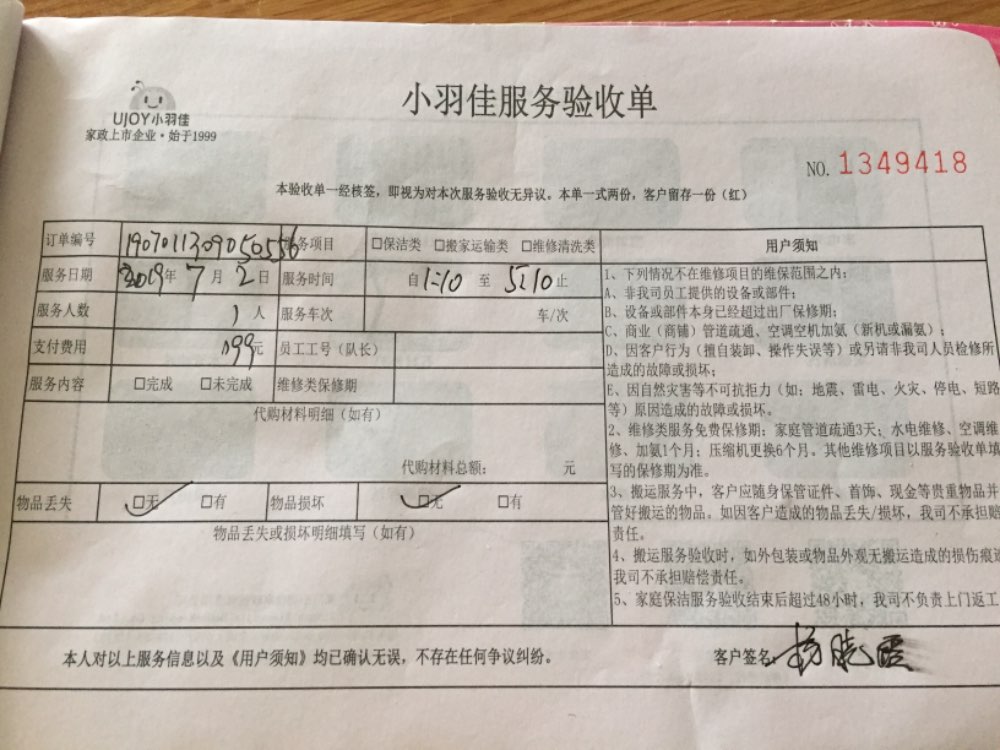 小羽佳服务验收单
UJOY小羽佳
家政上市企业·始于1999
NO. 1349418
本验收单一经核签，即视为对本次服务验收无异议。本单一式两份，客户留存一份（红）
订单编号 190701130905055 服务项目 □保洁类 □搬家运输类 □维修清洗类
服务日期 2019年 7月 2日 服务时间 自1:10 至 5:10止
服务人数 1人 服务车次 车/次
支付费用 199元 员工工号（队长）
服务内容 □完成 □未完成 维修类保修期
代购材料明细（如有）
代购材料总额： 元
物品丢失 □无 □有 物品损坏 □无 □有
物品丢失或损坏明细填写（如有）
用户须知
1、下列情况不在维修项目的维保范围之内：
A、非我司员工提供的设备或部件；
B、设备或部件本身已经超过出厂保修期；
C、商业（商铺）管道疏通、空调空机加氨（新机或漏氨）；
D、因客户行为（擅自装卸、操作失误等）或另请非我司人员检修所
造成的故障或损坏；
E、因自然灾害等不可抗拒力（如：地震、雷电、火灾、停电、短路
等）原因造成的故障或损坏。
2、维修类服务免费保修期：家庭管道疏通3天；水电维修、空调维
修、加氨1个月；压缩机更换6个月。其他维修项目以服务验收单填
写的保修期为准。
3、搬运服务中，客户应随身保管证件、首饰、现金等贵重物品并
管好搬运的物品。如因客户造成的物品丢失/损坏，我司不承担赔
责任。
4、搬运服务验收时，如外包装或物品外观无搬运造成的损伤痕迹
我司不承担赔偿责任。
5、家庭保洁服务验收结束后超过48小时，我司不负责上门返工
本人对以上服务信息以及《用户须知》均已确认无误，不存在任何争议纠纷。
客户签名：杨晓霞